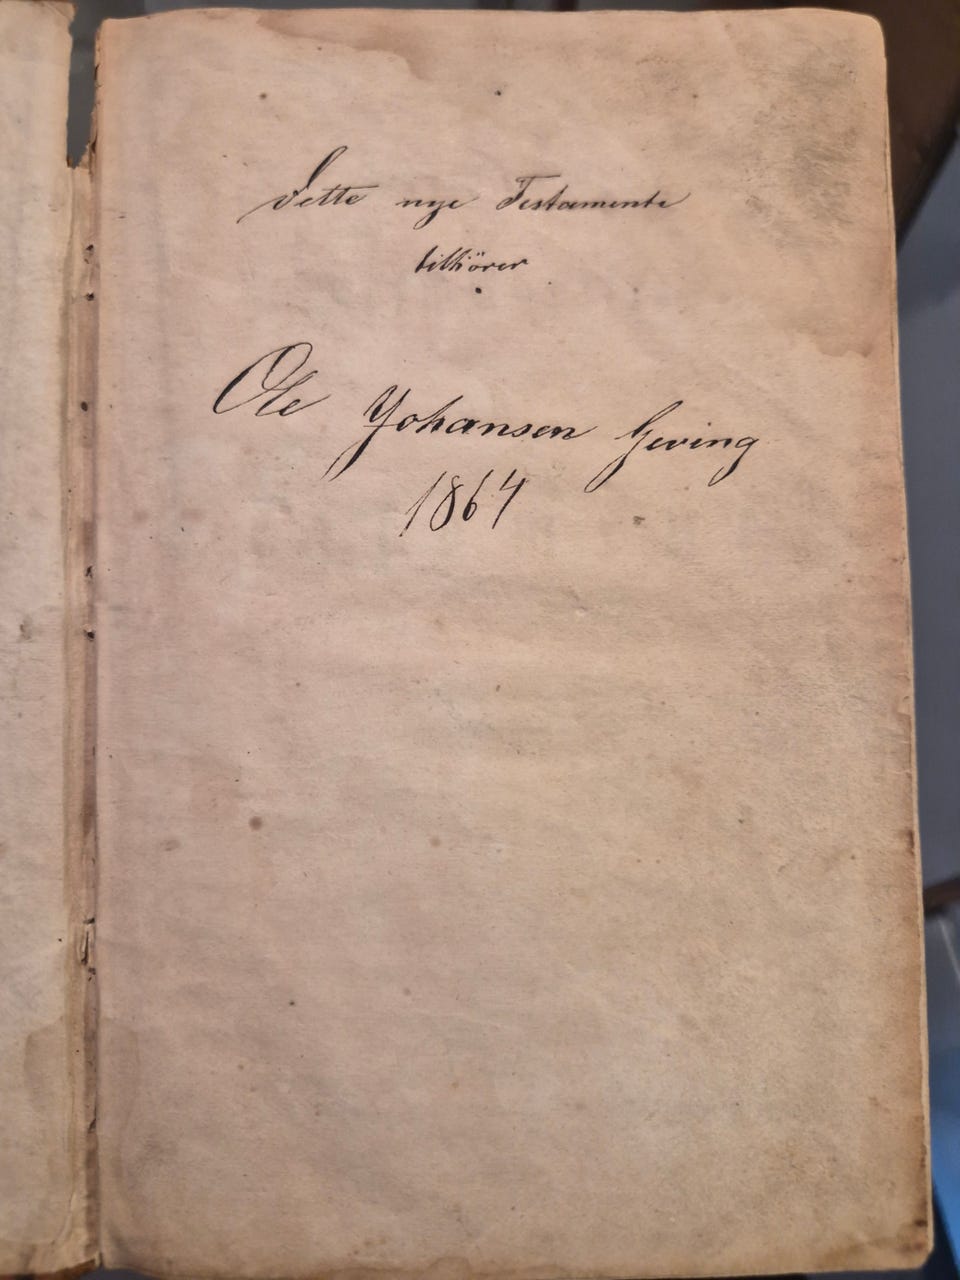 Dette nye Testamente
tilhörer
Ole Johansen Geving
1864